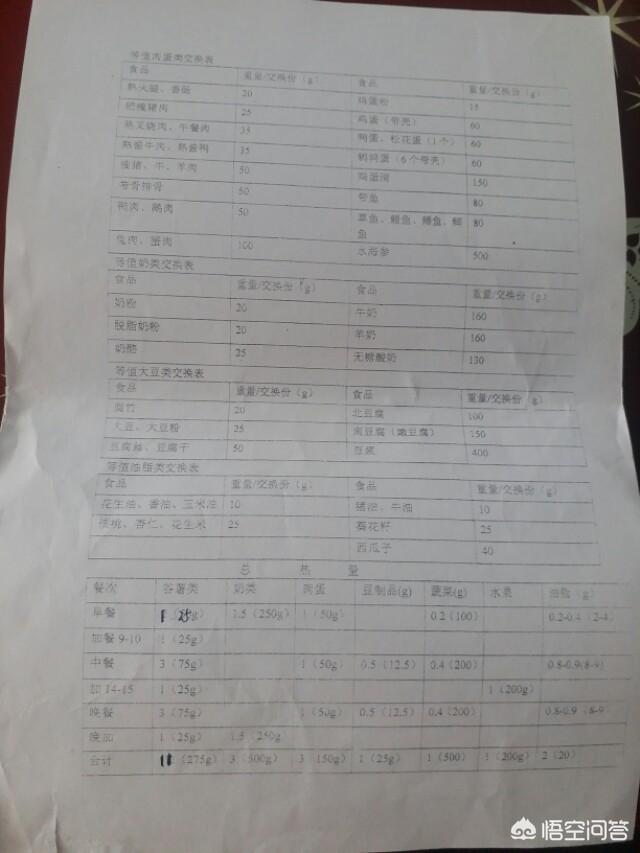 等值肉蛋类交换表
食品 重量/交换份（g） 食品 重量/交换份（g）
熟火腿、香肠 20 鸡蛋粉 15
肥瘦猪肉 25 鸡蛋（带壳） 60
熟叉烧肉、午餐肉 35 鸭蛋、松花蛋（1个） 60
熟酱牛肉、熟酱鸭 35 鹌鹑蛋（6个带壳） 60
瘦猪、牛、羊肉 50 鸡蛋清 150
带骨排骨 50 带鱼 80
鸭肉、鹅肉 50 草鱼、鲤鱼、 80
鱼
兔肉、蟹肉 100 水海参 500
等值奶类交换表
食品 重量/交换份（g） 食品 重量/交换份（g）
奶粉 20 牛奶 160
脱脂奶粉 20 羊奶 160
奶酪 25 无糖酸奶 130
等值大豆类交换表
食品 重量/交换份（g） 食品 重量/交换份（g）
腐竹 20 北豆腐 100
大豆、大豆粉 25 南豆腐（嫩豆腐） 150
豆腐丝、豆腐干 50 豆浆 400
等值油脂类交换表
食品 重量/交换份（g） 食品 重量/交换份（g）
花生油、香油、玉米油 10 猪油、牛油 10
核桃、杏仁、花生米 25 葵花籽 25
西瓜子 40
总 热 量
餐次 谷薯类 奶类 肉蛋 豆制品(g) 蔬菜(g) 水果 油脂（g）
早餐 1（25g） 1.5（250g） 1（50g） 0.2（100） 0.2-0.4（2-4）
加餐 9-10 1（25g）
中餐 3（75g） 1（50g） 0.5（12.5） 0.4（200） 0.8-0.9(8-9)
加 14-15 1（25g） 1（200g）
晚餐 3（75g） 1（50g） 0.5（12.5） 0.4（200） 0.8-0.9（8-9）
晚加 1（25g） 1.5（250g）
合计 11（275g） 3（500g） 3（150g） 1（25g） 1（500） 1（200g） 2（20）
悟空问答